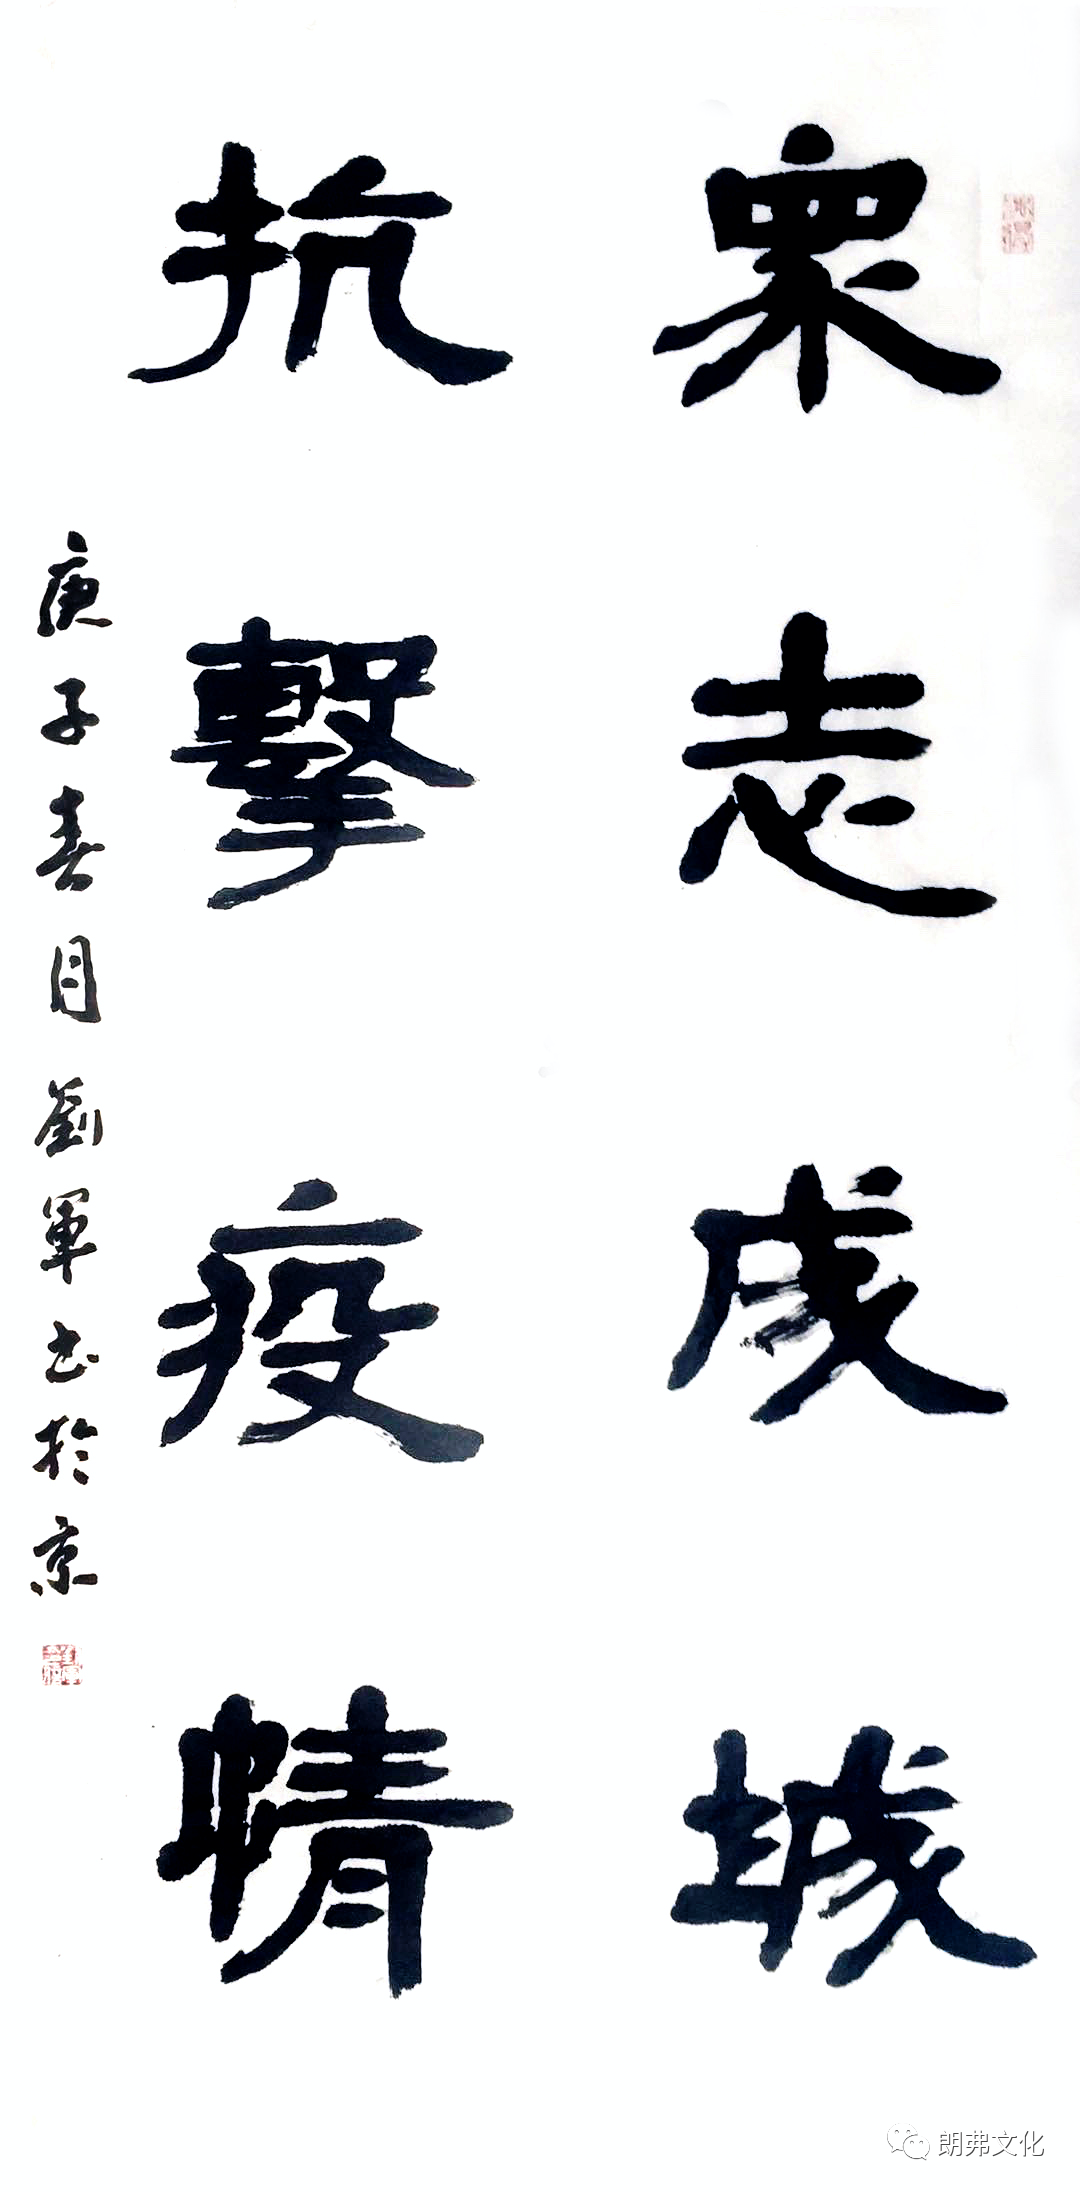 眾志成城
抗擊疫情
庚子春月劉軍书於京
朗弗文化